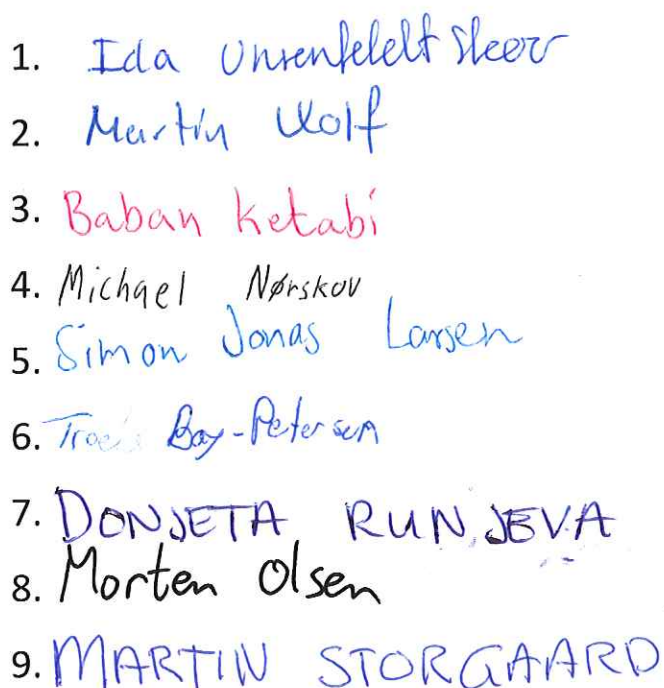 1. Ida Skov
2. Martin Wolf
3. Baban Ketabi
4. Michael Nørskov
5. Simon Jonas Larsen
6. Troels Bay-Petersen
7. DONJETA RUNJEVA
8. Morten Olsen
9. MARTIN STORGAARD